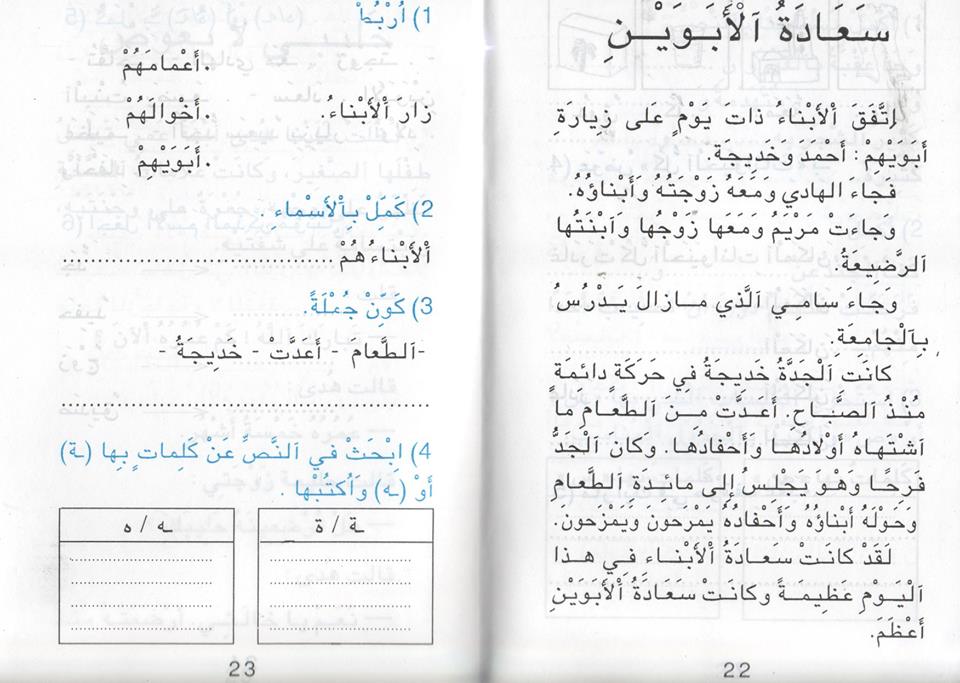 سَعَادَةُ اَلْأَبَوَيْنِ
اِتَّفَقَ اَلْأَبْنَاءُ ذَاتَ يَوْمٍ عَلَى زِيارَةِ
أَبَوَيْهِمْ : أَحْمَدَ وَخَدِيجَةَ.
فَجَاءَ الهادي وَمَعَهُ زَوْجَتُهُ وَأَبْناؤُهُ.
وَجَاءَتْ مَرْيَمُ وَمَعَها زَوْجُها وَاَبْنَتُها
اَلرَّضِيعَةُ.
وَجَاءَ سامي اَلَّذي مازالَ يَدْرُسُ
بِاَلْجامِعَةِ.
كانَت اَلْجَدَّةُ خديجةُ فِي حَرَكَةٍ دائمَةٍ
مُنْذُ اَلصَّبَاحِ. أَعَدَّتْ مِنَ اَلطَّعَامِ مَا
اَشْتَهَاهُ أَوْلادُهَا وَأَحْفادُهَا. وَكانَ اَلْجَدُّ
فَرِحًا وَهْوَ يَجْلِسُ إِلَى مائدَةِ اَلطَّعامِ
وَحَوْلَهُ أَبْناؤُهُ وَأَحْفادُهُ يَمْرَحونَ وَيَمْزَحونَ.
لَقَدْ كانَتْ سَعادَةُ اَلْأَبْنَاءِ فِي هذا
اَلْيَوْمِ عَظِيمَةً وَكانَتْ سَعَادَةُ اَلْأَبَوَيْنِ
أَعْظَمَ.
22
1) اُرْبُطْ
.أَعْمامَهُمْ
زارَ اَلْأَبْناءُ. .أَخْوالَهُمْ
.أَبَوَيْهِمْ
2) كَمِّلْ بِاَلْأَسْماءِ .
اَلْأَبْناءُ هُمْ ........................................
3) كَوِّنْ جُمْلَةً.
-اَلطَّعامَ - أَعَدَّتْ - خَدِيجَةُ -
........................................................
4) اِبْحَثْ في اَلنَّصِّ عَنْ كَلِماتٍ بِها (ـة)
أَوْ (ـه) وَاُكْتُبْها .
ـة / ة ـه / ه
23